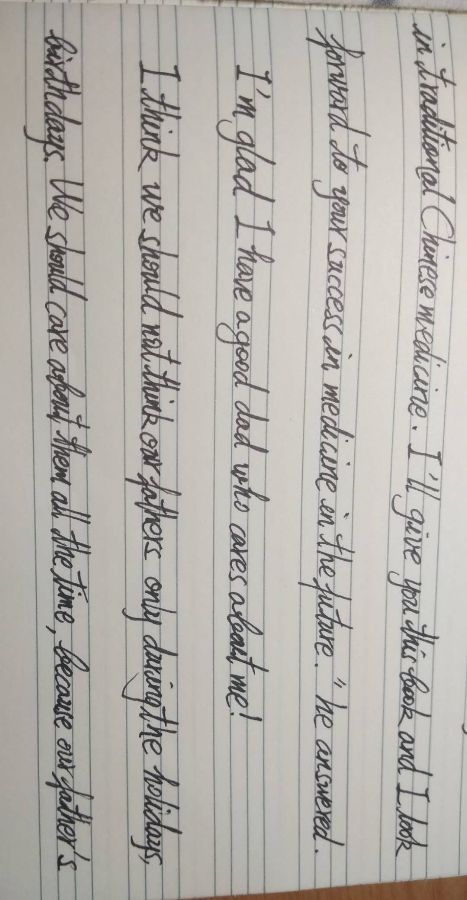 in traditional Chinese medicine. I'll give you this book and I look
forward to your success in medicine in the future." he answered.
I'm glad I have a good dad who cares about me!
I think we should not think our fathers only during the holidays,
birthdays. We should care about them all the time, because our father's